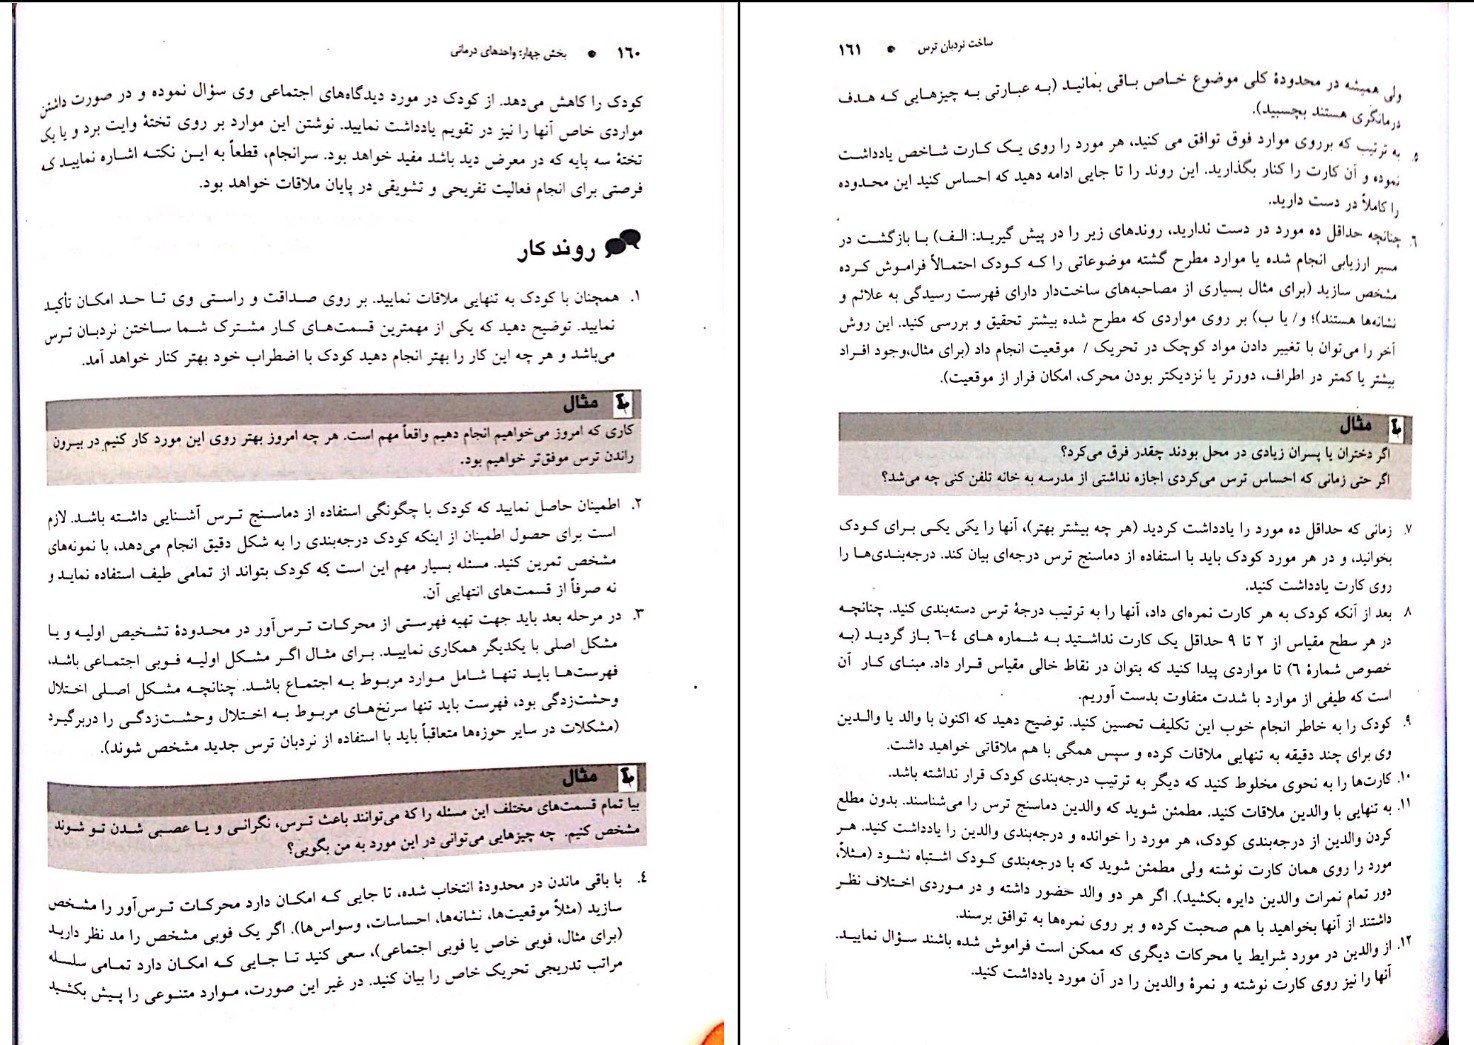 ۱۶۰ • بخش چهار: واحدهای درمانی
کودک را کاهش می‌دهد. از کودک در مورد دیدگاه‌های اجتماعی وی سؤال نموده و در صورت داشتن
مواردی خاص آنها را نیز در تقویم یادداشت نمایید. نوشتن این موارد بر روی تختهٔ وایت برد و یا یک
تختهٔ سه پایه که در معرض دید باشد مفید خواهد بود. سرانجام، قطعاً به این نکته اشاره نمایید که
فرصتی برای انجام فعالیت تفریحی و تشویقی در پایان ملاقات خواهد بود.
روند کار
۱. همچنان با کودک به تنهایی ملاقات نمایید. بر روی صداقت و راستی وی تا حد امکان تأکید
نمایید. توضیح دهید که یکی از مهمترین قسمت‌های کار مشترک شما ساختن نردبان ترس
می‌باشد و هر چه این کار را بهتر انجام دهید کودک با اضطراب خود بهتر کنار خواهد آمد.
مثال
کاری که امروز می‌خواهیم انجام دهیم واقعاً مهم است. هر چه امروز بهتر روی این مورد کار کنیم در بیرون
راندن ترس موفق‌تر خواهیم بود.
۲. اطمینان حاصل نمایید که کودک با چگونگی استفاده از دماسنج ترس آشنایی داشته باشد. لازم
است برای حصول اطمینان از اینکه کودک درجه‌بندی را به شکل دقیق انجام می‌دهد، با نمونه‌های
مشخص تمرین کنید. مسئله بسیار مهم این است که کودک بتواند از تمامی طیف استفاده نماید و
نه صرفاً از قسمت‌های انتهایی آن.
۳. در مرحله بعد باید جهت تهیه فهرستی از محرکات ترس‌آور در محدودهٔ تشخیص اولیه و یا
مشکل اصلی با یکدیگر همکاری نمایید. برای مثال اگر مشکل اولیه فوبی اجتماعی باشد،
فهرست‌ها باید تنها شامل موارد مربوط به اجتماع باشد. چنانچه مشکل اصلی اختلال
وحشت‌زدگی بود، فهرست باید تنها سرنخ‌های مربوط به اختلال وحشت‌زدگی را دربرگیرد
(مشکلات در سایر حوزه‌ها متعاقباً باید با استفاده از نردبان ترس جدید مشخص شوند).
مثال
بیا تمام قسمت‌های مختلف این مسئله را که می‌توانند باعث ترس، نگرانی و یا عصبی شدن تو شوند
مشخص کنیم. چه چیزهایی می‌توانی در این مورد به من بگویی؟
۴. با باقی ماندن در محدودهٔ انتخاب شده، تا جایی که امکان دارد محرکات ترس‌آور را مشخص
سازید (مثلاً موقعیت‌ها، نشانه‌ها، احساسات، وسواس‌ها). اگر یک فوبی مشخص را مد نظر دارید
(برای مثال، فوبی خاص یا فوبی اجتماعی)، سعی کنید تا جایی که امکان دارد تمامی سلسله
مراتب تدریجی تحریک خاص را بیان کنید. در غیر این صورت، موارد متنوعی را پیش بکشید
ساخت نردبان ترس • ۱۶۱
ولی همیشه در محدودهٔ کلی موضوع خاص باقی بمانید (به عبارتی به چیزهایی که هدف
درمانگری هستند بچسبید).
۵. به ترتیب که برروی موارد فوق توافق می کنید، هر مورد را روی یک کارت شاخص یادداشت
نموده و آن کارت را کنار بگذارید. این روند را تا جایی ادامه دهید که احساس کنید این محدوده
را کاملاً در دست دارید.
۶. چنانچه حداقل ده مورد در دست ندارید، روندهای زیر را در پیش گیرید: الف) با بازگشت در
مسیر ارزیابی انجام شده یا موارد مطرح گشته موضوعاتی را که کودک احتمالاً فراموش کرده
مشخص سازید (برای مثال بسیاری از مصاحبه‌های ساخت‌دار دارای فهرست رسیدگی به علائم و
نشانه‌ها هستند)؛ و/ یا ب) بر روی مواردی که مطرح شده بیشتر تحقیق و بررسی کنید. این روش
آخر را می‌توان با تغییر دادن مواد کوچک در تحریک / موقعیت انجام داد (برای مثال،وجود افراد
بیشتر یا کمتر در اطراف، دورتر یا نزدیکتر بودن محرک، امکان فرار از موقعیت).
مثال
اگر دختران یا پسران زیادی در محل بودند چقدر فرق می‌کرد؟
اگر حتی زمانی که احساس ترس می‌کردی اجازه نداشتی از مدرسه به خانه تلفن کنی چه می‌شد؟
۷. زمانی که حداقل ده مورد را یادداشت کردید (هر چه بیشتر بهتر)، آنها را یکی یکی برای کودک
بخوانید، و در هر مورد کودک باید با استفاده از دماسنج ترس درجه‌ای بیان کند. درجه‌بندی‌ها را
روی کارت یادداشت کنید.
۸ بعد از آنکه کودک به هر کارت نمره‌ای داد، آنها را به ترتیب درجهٔ ترس دسته‌بندی کنید. چنانچه
در هر سطح مقیاس از ۲ تا ۹ حداقل یک کارت نداشتید به شماره های ۴-۶ باز گردید (به
خصوص شمارهٔ ۶) تا مواردی پیدا کنید که بتوان در نقاط خالی مقیاس قرار داد. مبنای کار آن
است که طیفی از موارد با شدت متفاوت بدست آوریم.
۹. کودک را به خاطر انجام خوب این تکلیف تحسین کنید. توضیح دهید که اکنون با والد یا والدین
وی برای چند دقیقه به تنهایی ملاقات کرده و سپس همگی با هم ملاقاتی خواهید داشت.
۱۰. کارت‌ها را به نحوی مخلوط کنید که دیگر به ترتیب درجه‌بندی کودک قرار نداشته باشد.
۱۱. به تنهایی با والدین ملاقات کنید. مطمئن شوید که والدین دماسنج ترس را می‌شناسند. بدون مطلع
کردن والدین از درجه‌بندی کودک، هر مورد را خوانده و درجه‌بندی والدین را یادداشت کنید. هر
مورد را روی همان کارت نوشته ولی مطمئن شوید که با درجه‌بندی کودک اشتباه نشود (مثلاً،
دور تمام نمرات والدین دایره بکشید). اگر هر دو والد حضور داشته و در موردی اختلاف نظر
داشتند از آنها بخواهید با هم صحبت کرده و بر روی نمره‌ها به توافق برسند.
۱۲. از والدین در مورد شرایط یا محرکات دیگری که ممکن است فراموش شده باشند سؤال نمایید.
آنها را نیز روی کارت نوشته و نمرهٔ والدین را در آن مورد یادداشت کنید.